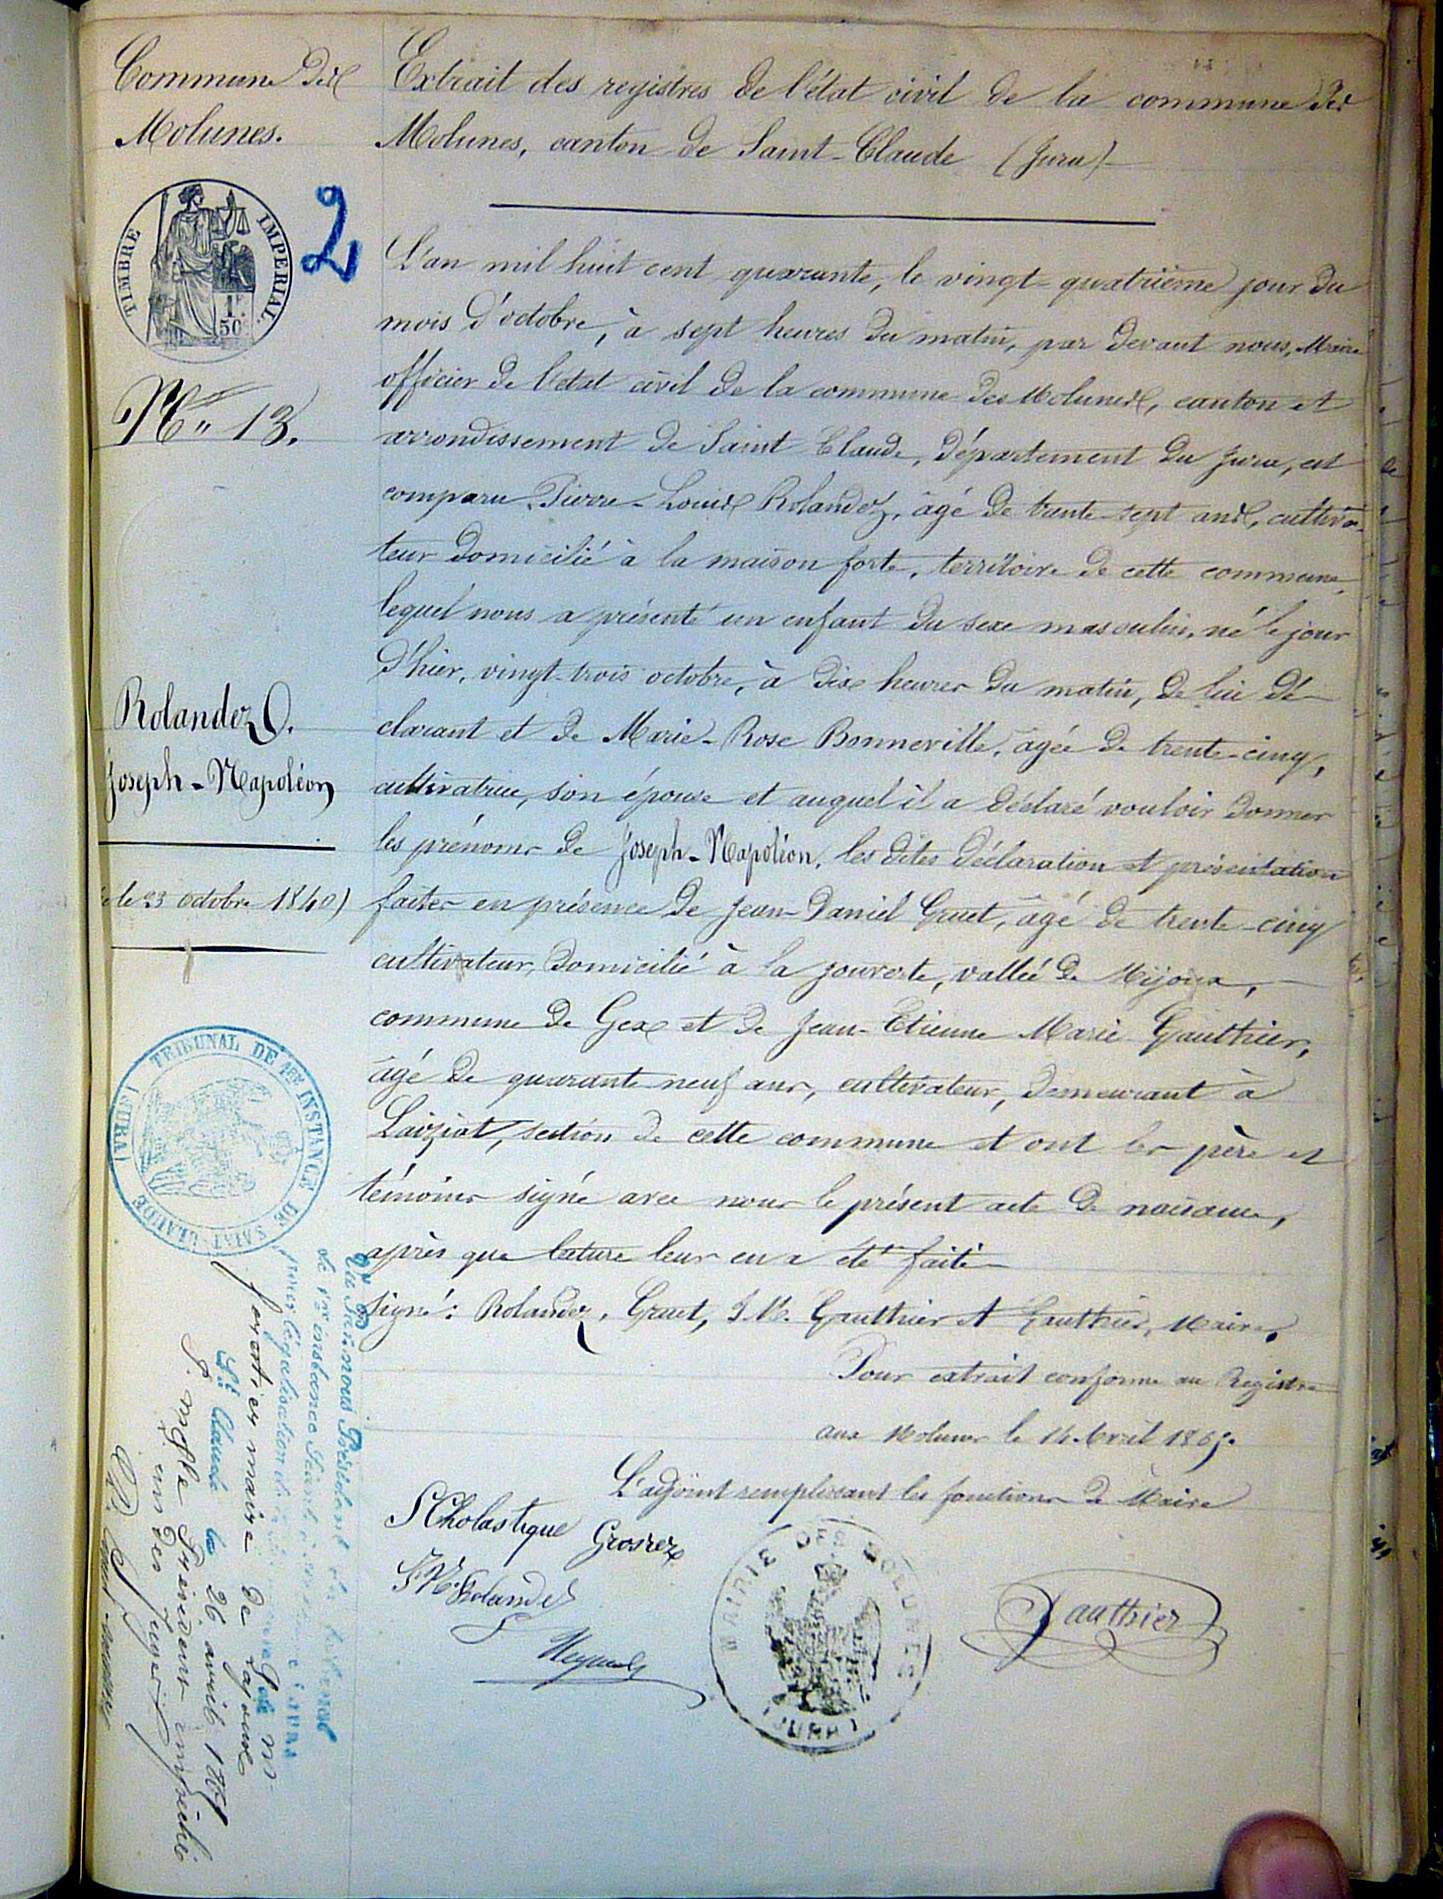 Commune des
Molunes.
TIMBRE IMPERIAL
1F 50
2
N° 13.
Rolandez
Joseph-Napoléon
le 23 octobre 1840)
Extrait des registres de l'état civil de la commune des
Molunes, canton de Saint-Claude (Jura)
L'an mil huit cent quarante, le vingt-quatrième jour du
mois d'octobre, à sept heures du matin, par devant nous, Maire
officier de l'état civil de la commune des Molunes, canton et
arrondissement de Saint Claude, département du Jura, est
comparu Pierre-Louis Rolandez, âgé de trente-sept ans, cultiva-
teur domicilié à la maison forte, territoire de cette commune,
lequel nous a présenté un enfant du sexe masculin, né le jour
d'hier, vingt-trois octobre, à dix heures du matin, de lui dé-
clarant et de Marie-Rose Bonneville, âgée de trente-cinq,
cultivatrice, son épouse et auquel il a déclaré vouloir donner
les prénoms de Joseph-Napoléon, les dites déclaration et présentation
faites en présence de Jean-Daniel Gruet, âgé de trente-cinq
cultivateur, domicilié à la jouverte, vallée de Mijoux,
commune de Gex et de Jean-Etienne Marie Gauthier,
âgé de quarante-neuf ans, cultivateur, demeurant à
Laiziat, section de cette commune et ont les père et
témoins signé avec nous le présent acte de naissance,
après que lecture leur en a été faite
Signé: Rolandez, Gruet, J.M. Gauthier et Gauthier, Maire.
Pour extrait conforme au Registre
aux Molunes le 14 Avril 1869.
L'adjoint remplissant les fonctions de Maire
SCholastique Grosrez
JN. Rolandez
Gauthier
MAIRIE DES MOLUNES
(JURA)
TRIBUNAL DE 1ERE INSTANCE DE SAINT-CLAUDE
(JURA)
Vu par nous Président du tribunal
de 1ère instance séant à
pour légalisation de la
forestier maire de
St Claude le 26 avril